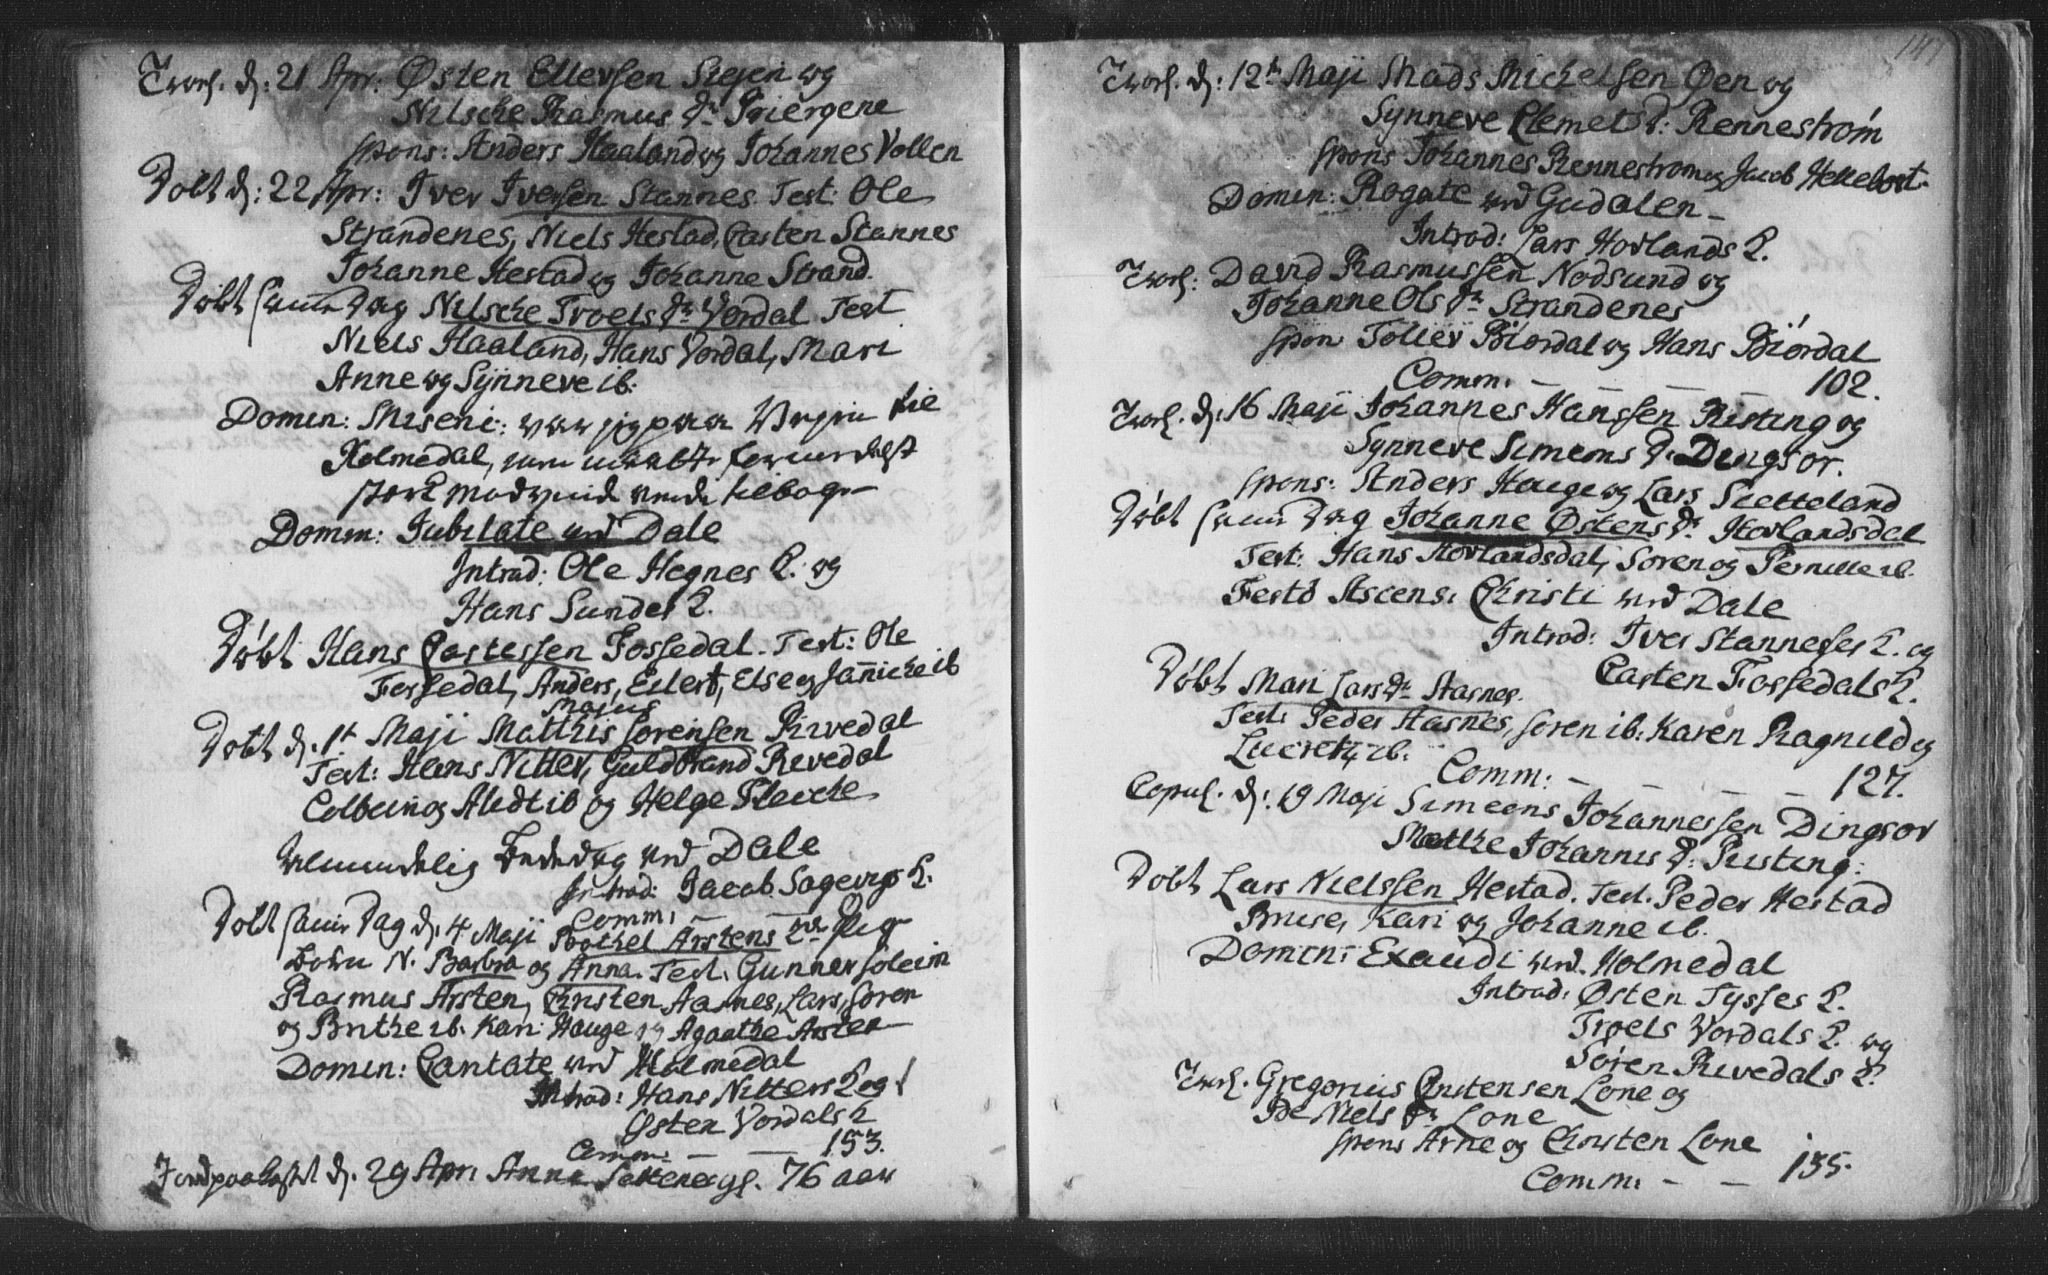 Troel. d: 21 Apr: Østen Ellevsen Siejen og
Nilsche Rasmus Dr
spons: Anders Haaland og Johannes Vollen
Døbt d: 22 Apr: Iver Iversen Stannes Test: Ole
Strandenes, Niels Hestad, Carsten Stannes
Johanne Hestad og Johanne Strand.
Døbt samme Dag Nilsche Troels Dr Vordal Test
Niels Haaland, Hans Vordal, Mari
Anne og Synneve ib:
Domin: Miseric: var jeg paa Vejen til
Holmedal, men
stærk Modvind vende tilbage
Domin: Jubilate ved Dale
Introd: Ole Hegnes K. og
Hans Sundes K.
Døbt Hans Carstessen Fossedal. Test: Ole
Fossedal, Anders, Eilert, Else og Jannicke ib
Majus
Døbt d. 1t Maji Matthis Sørensen Rivedal
Test: Hans Nitter, Guldbrand Rivedal
Colbein og Aledt ib og Helge Fleicke
Almindelig Bededag ved Dale
Introd: Jacob K.
Comm:
Døbt samme Dag d. 4 Maji Bothel Arstens
N. Barbra og Anna. Test. Gunner Soleim
Rasmus Arsten, Christen Aasnes, Lars, Søren
og Brithe ib. Kari Hauge og Agaathe Arsten
Domin: Cantate ved Holmedal
Introd: Hans Nitters K og
Østen Vordals K
Comm: — — 153.
Jordpaakastet d. 29 Apr: Anna 76 aar
147
Troel. d: 12t Maji Mads Michelsen Øen og
Synneve Clemets D: Rennestrøm
spons Johannes Rennestrøm og Jacob Hellebost.
Domin: Rogate ved Gudalen —
Introd: Lars Hovlands K.
Troel: David Rasmussen Nodsund og
Johanne Ols Dr Strandenes
spon Tollev Biordal og Hans Biordal
Comm. — — — — 102.
Troel. d: 16 Maji Johannes Hanssen Risting og
Synneve Simems D: Dingsør.
spons: Anders Hauge og Lars Sletteland
Døbt samme Dag Johanne Østens Dr. Hovlandsdal
Test: Hans Hovlandsdal, Søren og Pernille ib.
Festo Ascens: Christi ved Dale
Introd: Iver Stannesses K. og
Carsten Fossedals K.
Døbt Mari Lars Dr Aasnes.
Test: Peder Aasnes, Søren ib. Karen Ragnild og
Lucretz ib.
Comm: — — — — 127.
Copul. d. 19 Maji Simeens Johannessen Dingsør
Matthe Johannis D: Risting:
Døbt Lars Nielssen Hestad. Test. Peder Hestad
Kari og Johanne ib.
Domin: Exaudi ved Holmedal
Introd: Østen Tysses K.
Troels Vordals K. og
Søren Rivedals K.
Troel. Gregorius Cristensen Lone og
Niels Dr Lone
spons Arne og Christen Lone
Comm: — — 135.